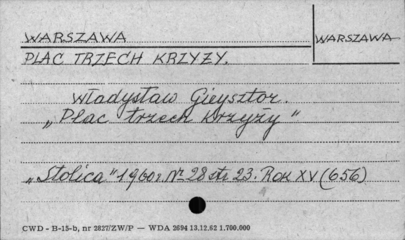 WARSZAWA
WARSZAWA
PLAC TRZECH KRZYŻY.
Władysław Gieysztor.
„Plac trzech Krzyży"
„Stolica" 1960 r. Nr 28 str. 23. Rok XV (656)
CWD - B-15-b, nr 2827/ZW/P — WDA 2694 13.12.62 1.700.000